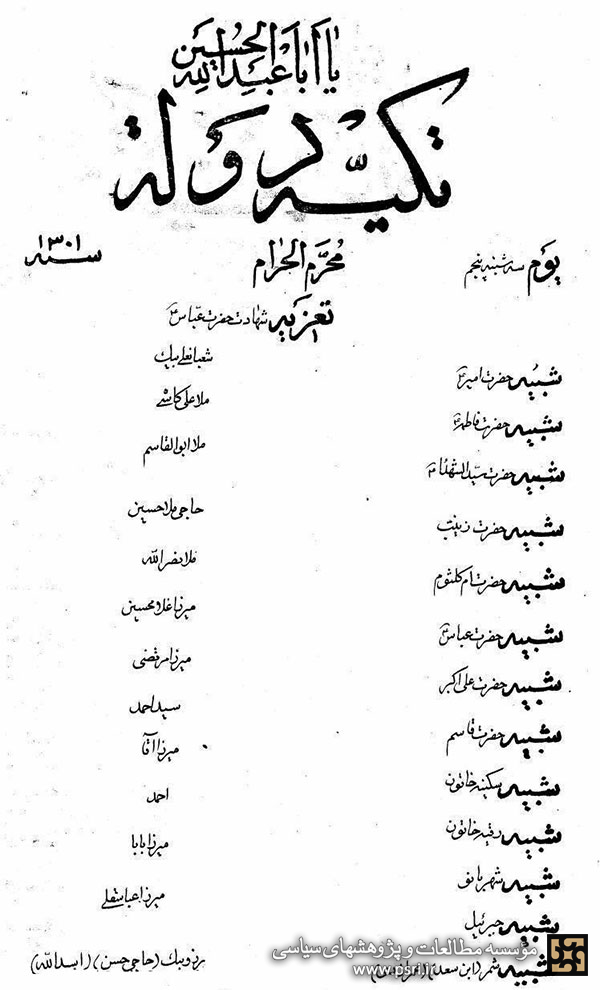 یا اباعبدالله الحسین
تکیه دولة
یوم سه شنبه پنجم محرم الحرام سنه ۱۳۰۱
تعزیه شهادت حضرت عباس ع
شبیه حضرت امیر ع شعبانعلی بیک
شبیه حضرت فاطمه ع ملا علی کاشی
شبیه حضرت سید الشهداء ع ملا ابوالقاسم
شبیه حضرت زینب حاجی ملا حسین
شبیه حضرت ام کلثوم ملا نصرالله
شبیه حضرت عباس ع میرزا غلامحسین
شبیه حضرت علی اکبر میرزا مرتضی
شبیه حضرت قاسم سید احمد
شبیه سکینه خاتون میرزا آقا
شبیه رقیه خاتون احمد
شبیه شهربانو میرزا بابا
شبیه جبرئیل میرزا عباسقلی
شبیه شمر (ابن سعد) (حاجی حسن) (اسدالله)
مؤسسه مطالعات و پژوهشهای سیاسی
www.psri.ir